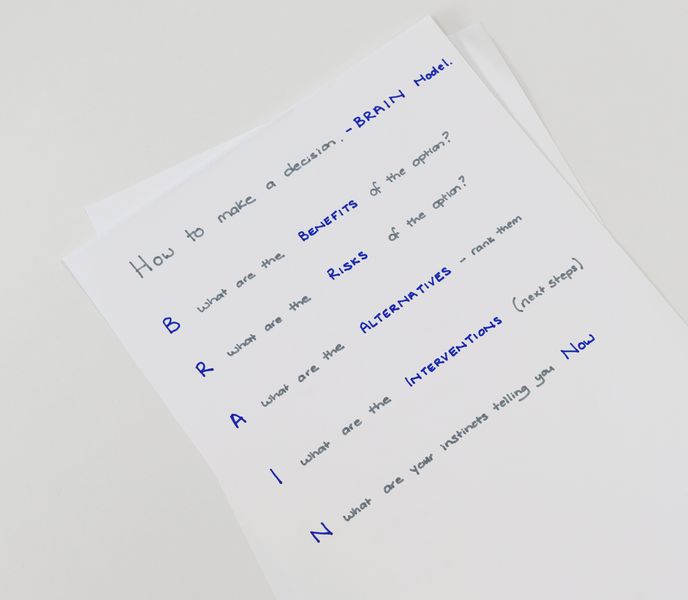 How to make a decision. - BRAIN Model.
B what are the BENEFITS of the option?
R what are the RISKS of the option?
A what are the ALTERNATIVES - rank them
I what are the INTERVENTIONS (next steps)
N what are your instincts telling you Now